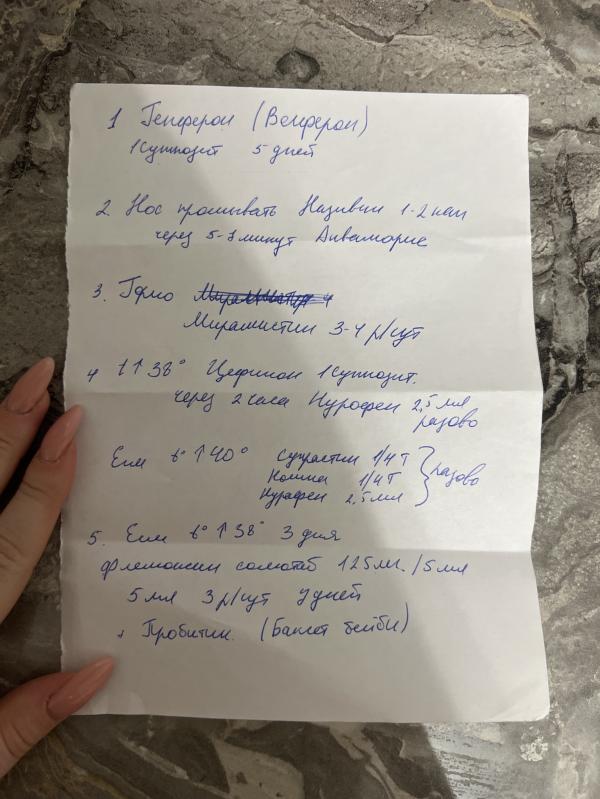 1 Генферон (Виферон)
1 суппозит 5 дней
2. Нос промывать Називин 1-2 кап
через 5-7 минут Аквамарис
3. Горло
Мирамистин 3-4 р/сут
4 t↑38° Цефикон 1 суппозит.
через 2 часа Нурофен 2,5 мл
разово
Если t° ↑40° Супрастин 1/4 т
Ношпа 1/4 т разово
Нурофен 2,5 мл
5. Если t° ↑38° 3 дня
Флемоксин солютаб 125 мг./5 мл
5 мл 3 р/сут 7 дней
+ Пробитик. (Бакт бейби)